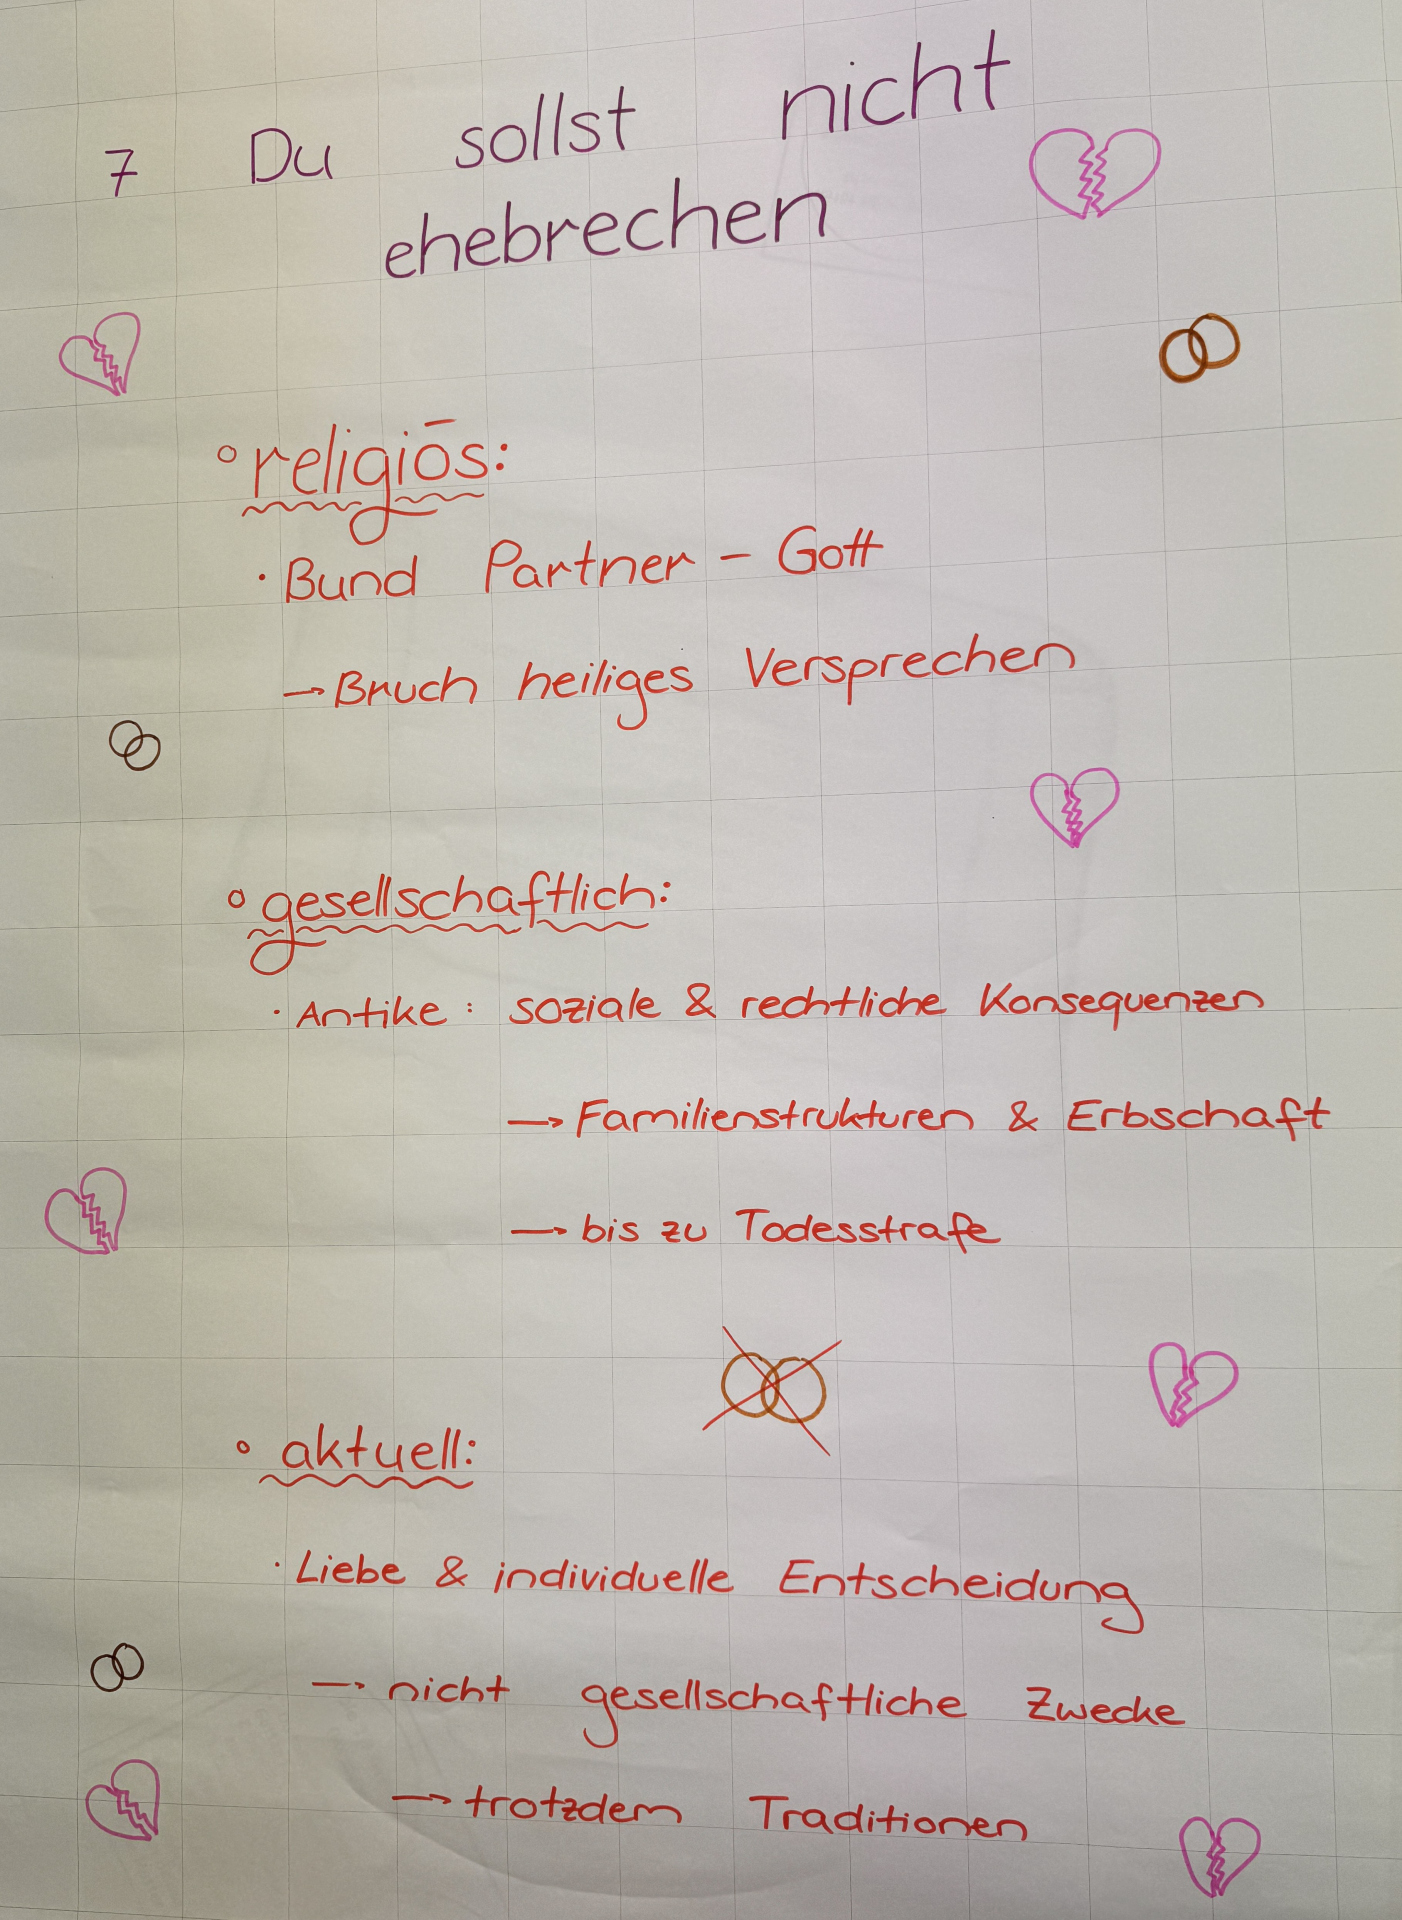 7 Du sollst nicht
ehebrechen
° religiös:
· Bund Partner - Gott
→ Bruch heiliges Versprechen
° gesellschaftlich:
· Antike: soziale & rechtliche Konsequenzen
→ Familienstrukturen & Erbschaft
→ bis zu Todesstrafe
° aktuell:
· Liebe & individuelle Entscheidung
→ nicht gesellschaftliche Zwecke
→ trotzdem Traditionen